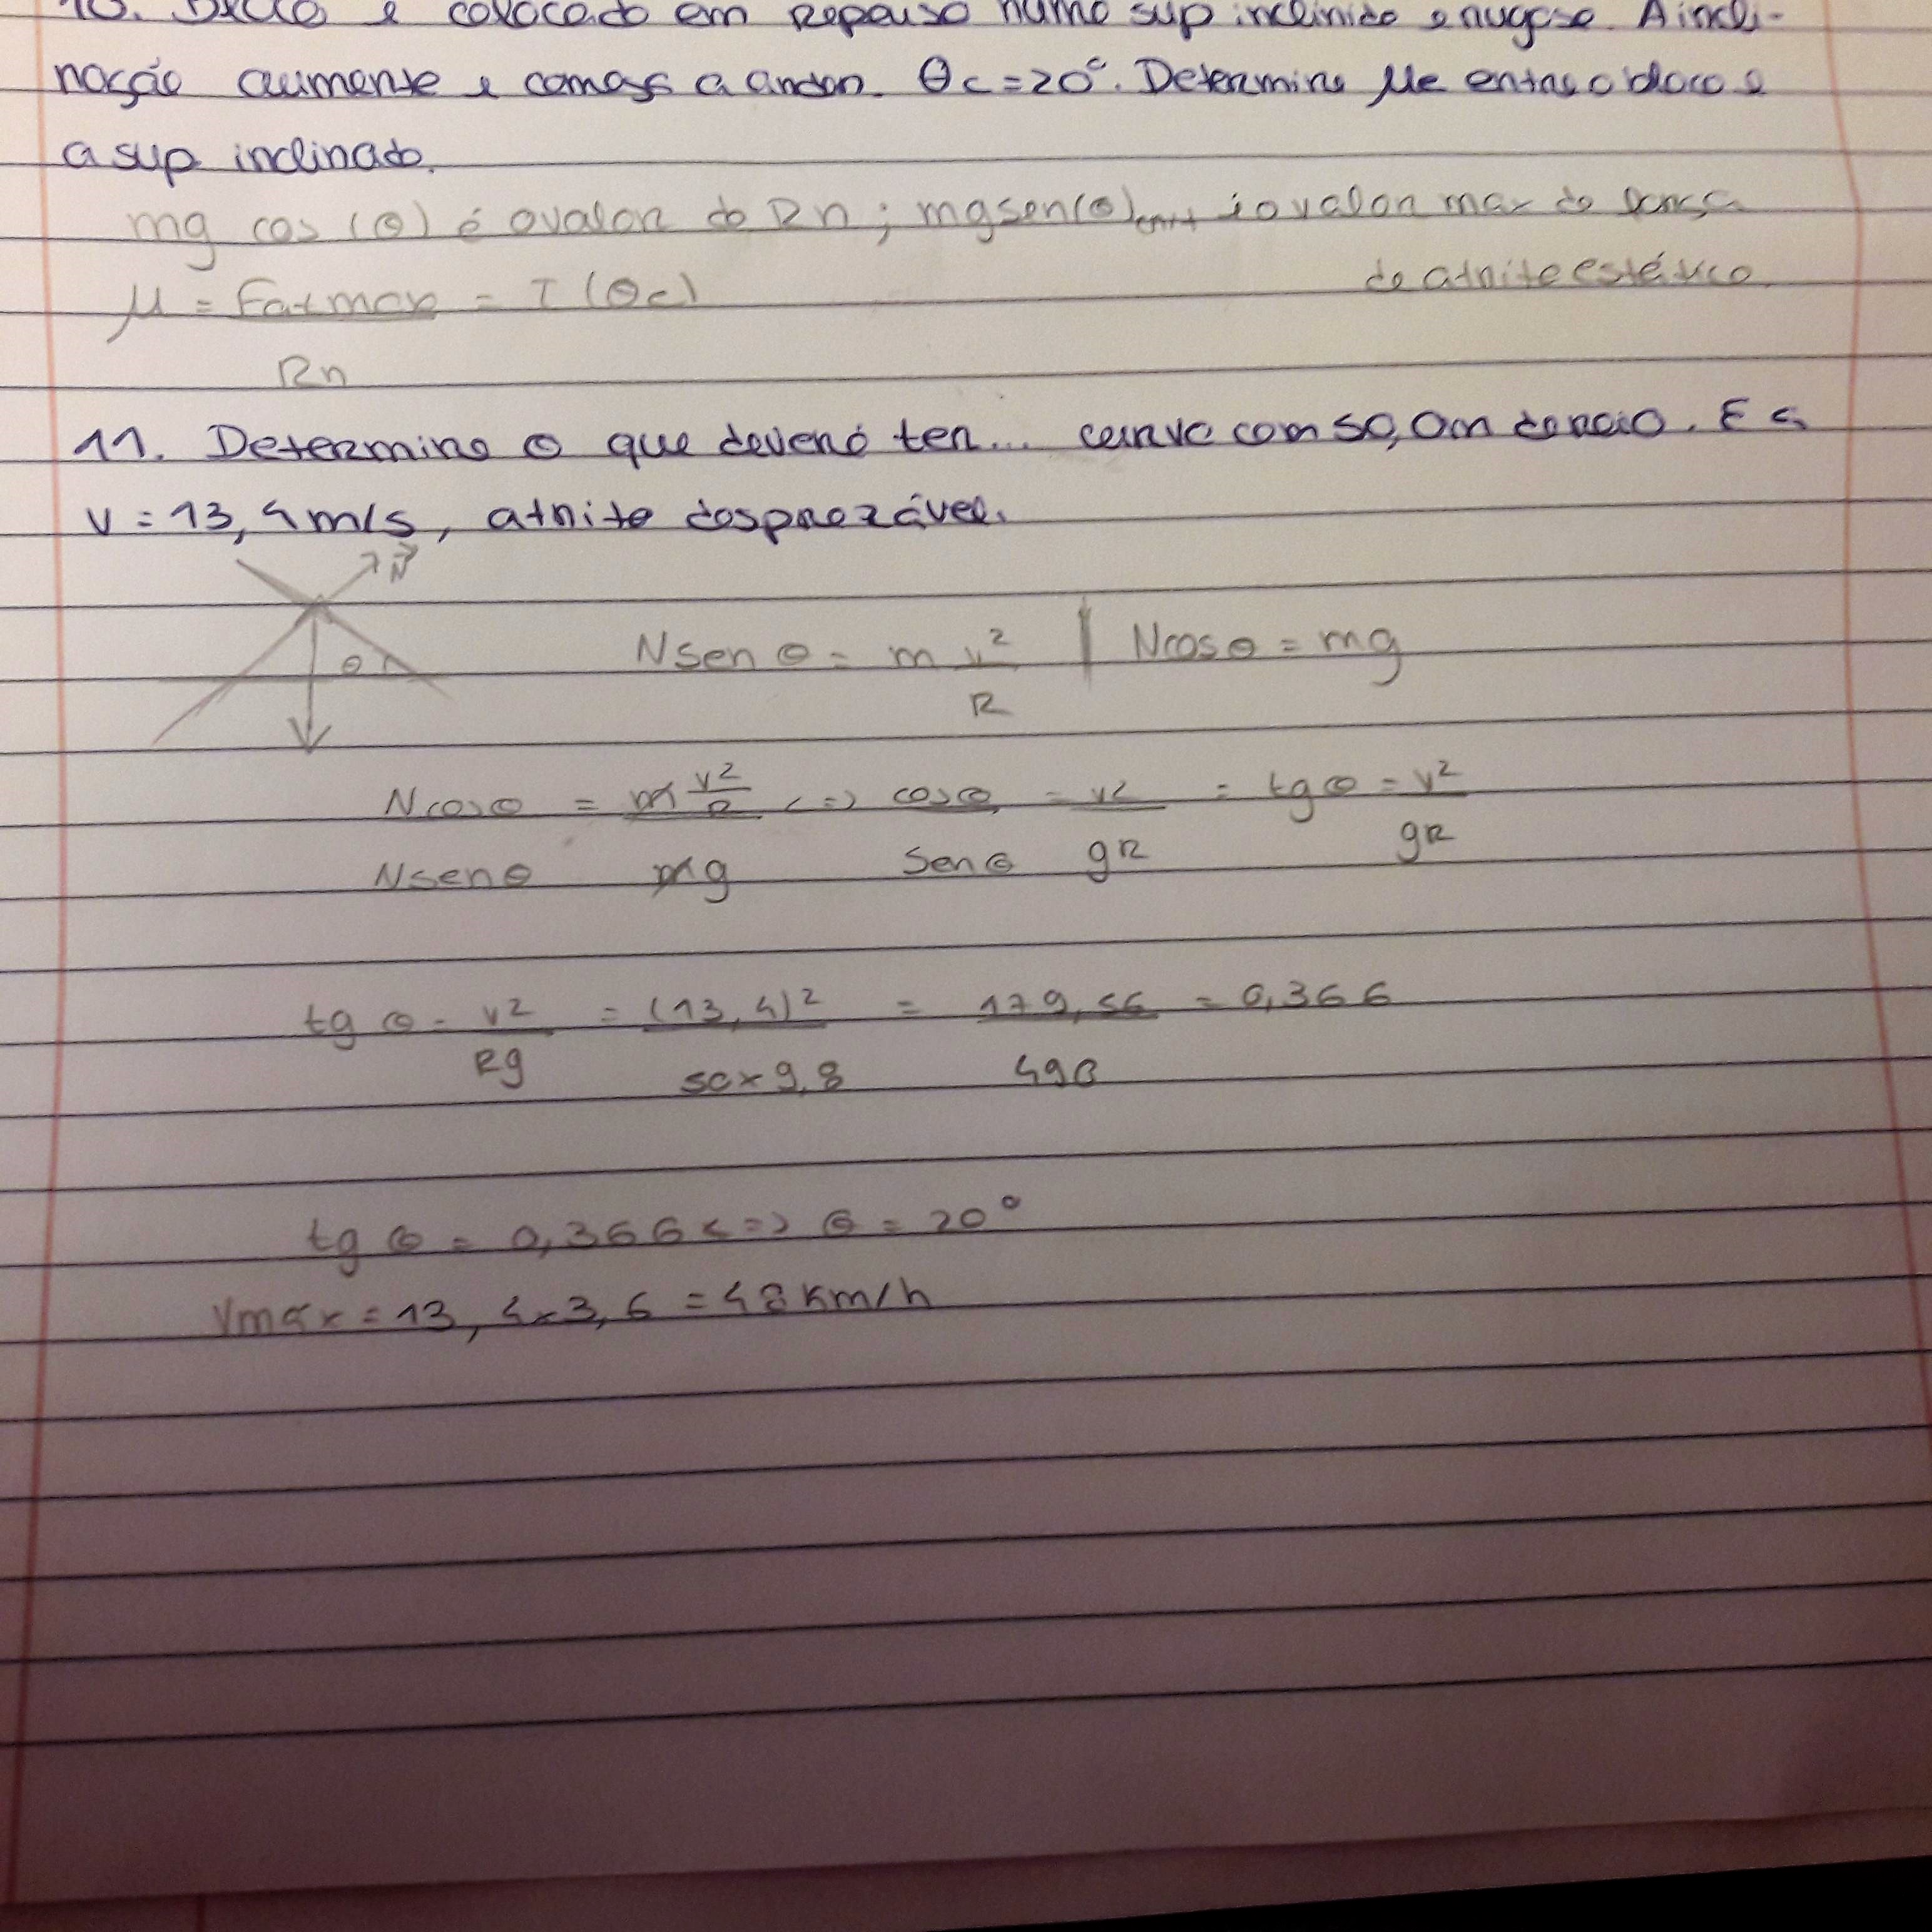 10. Bloco é colocado em repouso numa sup inclinida e rugosa. A incli-
nação aumenta e começa a andar. θc = 20°. Determine μe entre o bloco e
a sup inclinado.
mg cos (θ) é o valor do Rn ; mg sen(θ)crit é o valor max do força
de atrito estático.
μ = Fat max / Rn = T (θc)
11. Determine θ que deverá ter... curva com 50,0m de raio. E
v = 13,4 m/s, atrito desprezável.
N
θ
N sen θ = m v² / R | N cos θ = mg
N cos θ / N sen θ = m v²/R / mg <=> cos θ / sen θ = v² / gR = tg θ = v² / gR
tg θ = v² / Rg = (13,4)² / 50 x 9,8 = 179,56 / 490 = 0,366
tg θ = 0,366 <=> θ = 20°
Vmáx = 13,4 x 3,6 = 48 Km/h